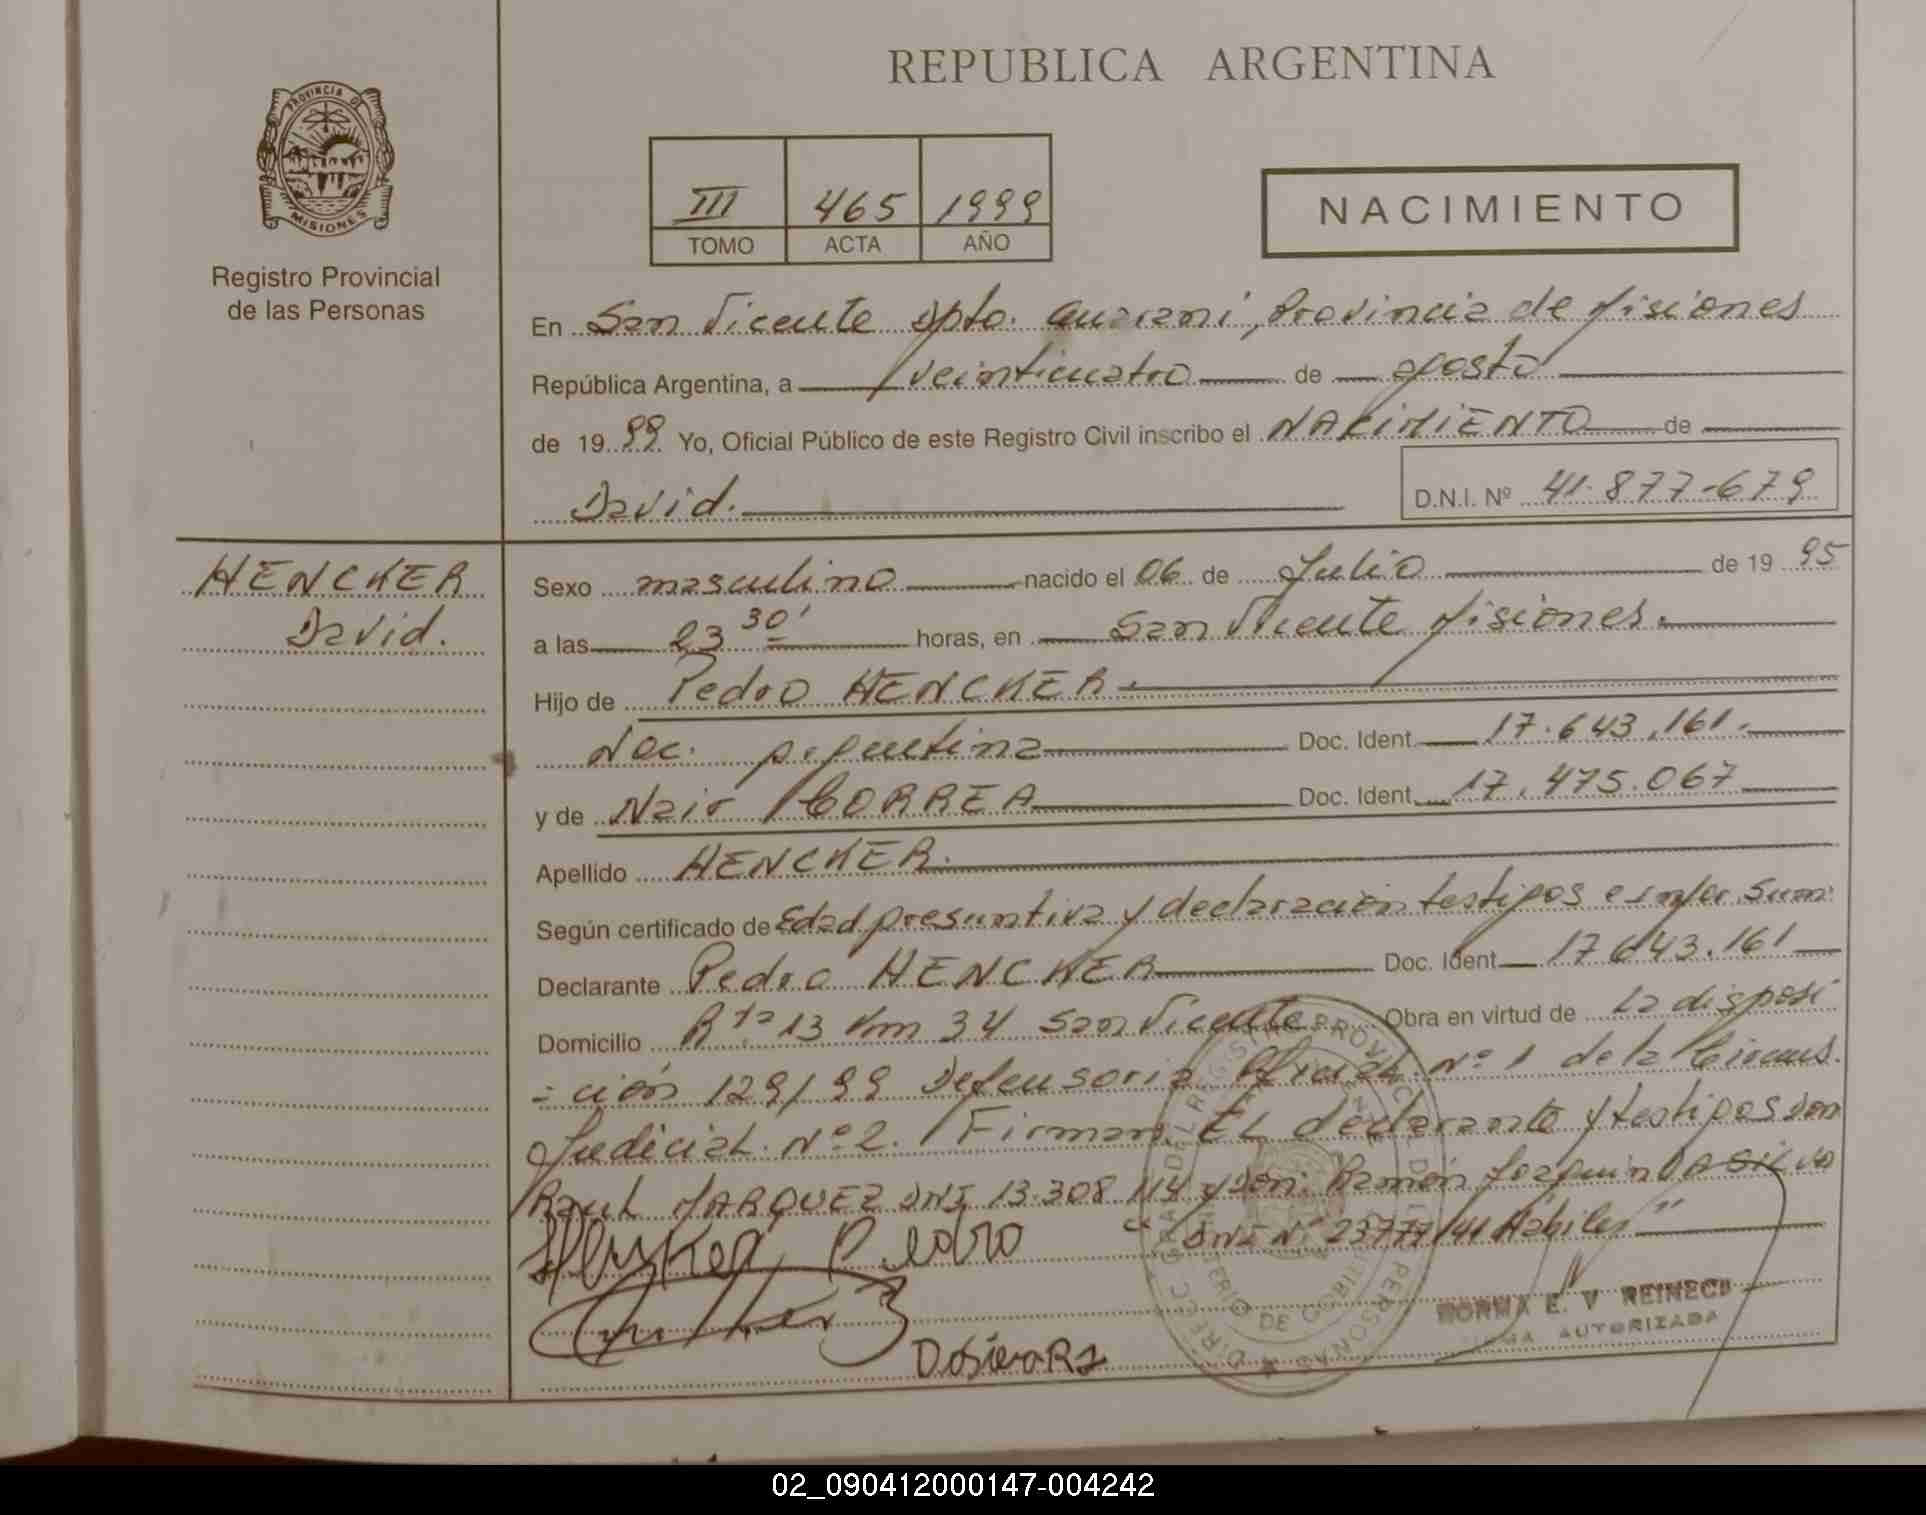 REPUBLICA ARGENTINA
PROVINCIA DE
MISIONES
Registro Provincial
de las Personas
III 465 1999
TOMO ACTA AÑO
NACIMIENTO
En San Vicente Dpto. Guarani, Provincia de Misiones
República Argentina, a veinticuatro de agosto
de 1999 Yo, Oficial Público de este Registro Civil inscribo el NACIMIENTO de
David. D.N.I. Nº 41.877.679
HENCKER
David.
Sexo masculino nacido el 06 de Julio de 1995
a las 23 30' horas, en San Vicente Misiones.
Hijo de Pedro HENCKER
Nac. Argentina Doc. Ident. 17.643.161.
y de Nair CORREA Doc. Ident. 17.475.067
Apellido HENCKER.
Según certificado de Edad presuntiva y declaración testigos e infor. sum.
Declarante Pedro HENCKER Doc. Ident. 17643.161
Domicilio Rta 13 Km 34 San Vicente Obra en virtud de La disposi
=ción 129/99 Defensoria Oficial Nº 1 de la Circuns.
Judicial Nº 2. Firman EL declarante y testigos don
Raul MARQUEZ DNI 13.308.114 y don: Ramón Joaquin DA SILVA
" DNI Nº 23777141 Hábiles "
Pedro
DasilvaRJ
NORMA E. V REINECK
FIRMA AUTORIZADA
02_090412000147-004242